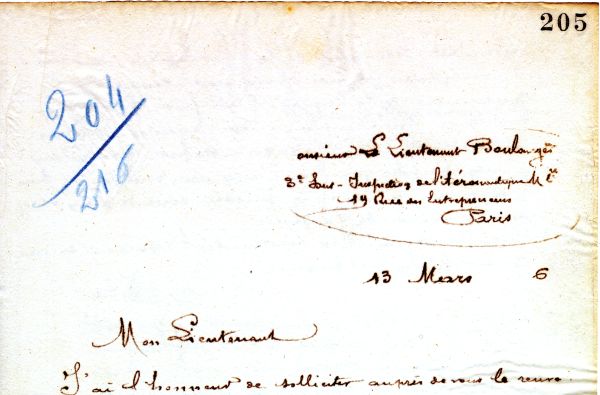 205
204
216
onsieur Le Lieutenant Boulanger
3e Sous-Inspection de l'Aéronautique Mre
19 Rue des Entrepreneurs
Paris
13 Mars 6
Mon Lieutenant
J'ai l'honneur de solliciter auprès de vous le